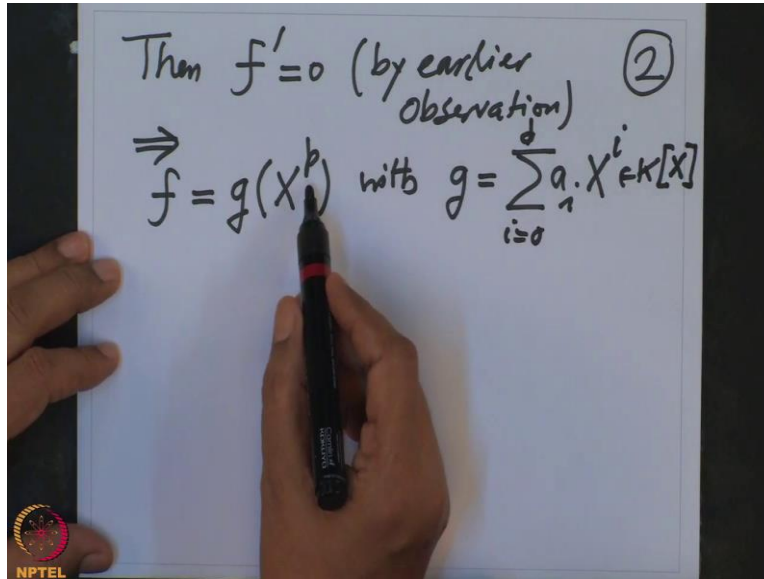 Then f′=0 (by earlier ②
observation)
⇒ f = g(X^p) with g = ∑_{i=0}^{d} a_i X^i ∈ K[X]
NPTEL